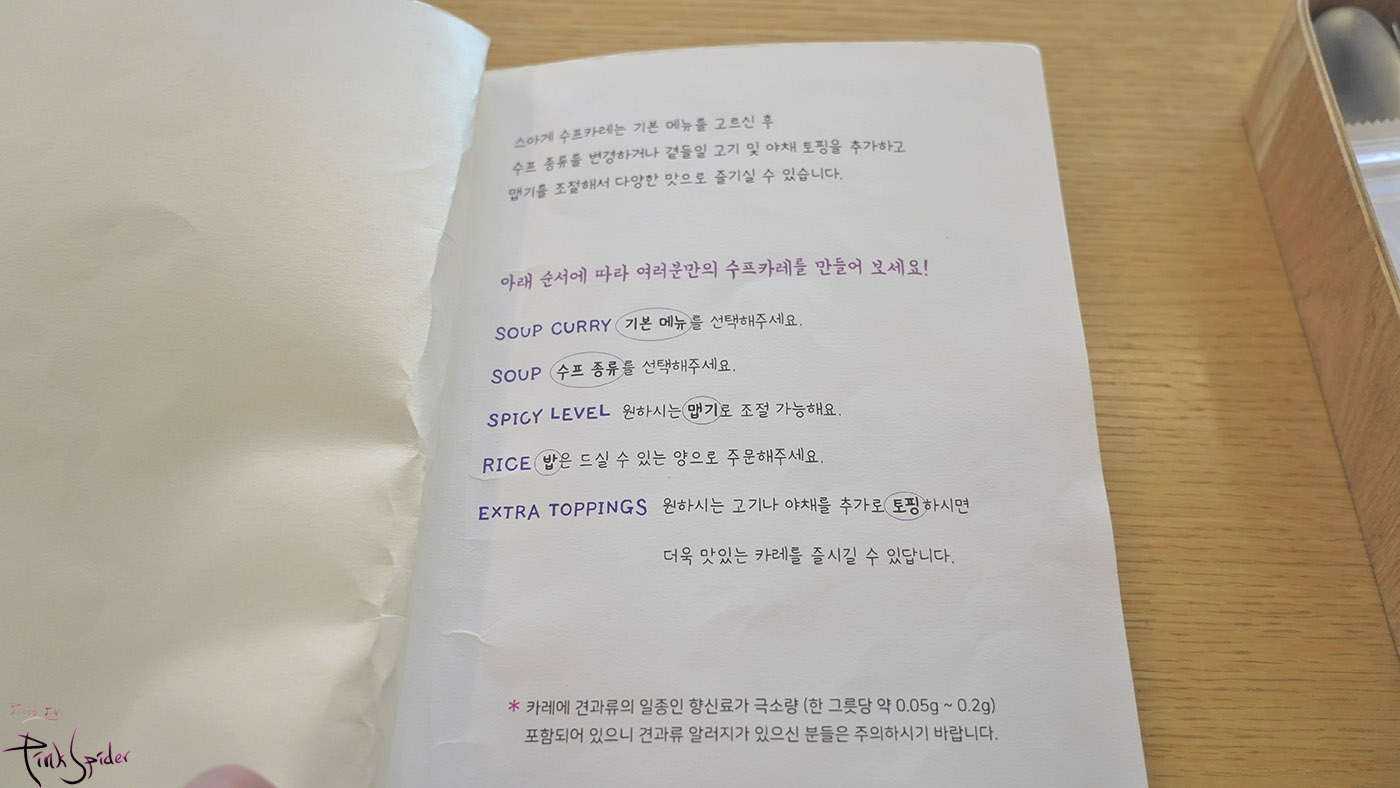 스아게 수프카레는 기본 메뉴를 고르신 후
수프 종류를 변경하거나 곁들일 고기 및 야채 토핑을 추가하고
맵기를 조절해서 다양한 맛으로 즐기실 수 있습니다.
아래 순서에 따라 여러분만의 수프카레를 만들어 보세요!
SOUP CURRY 기본 메뉴를 선택해주세요.
SOUP 수프 종류를 선택해주세요.
SPICY LEVEL 원하시는 맵기로 조절 가능해요.
RICE 밥은 드실 수 있는 양으로 주문해주세요.
EXTRA TOPPINGS 원하시는 고기나 야채를 추가로 토핑하시면
더욱 맛있는 카레를 즐시길 수 있답니다.
* 카레에 견과류의 일종인 향신료가 극소량 (한 그릇당 약 0.05g ~ 0.2g)
포함되어 있으니 견과류 알러지가 있으신 분들은 주의하시기 바랍니다.
Pink Spider